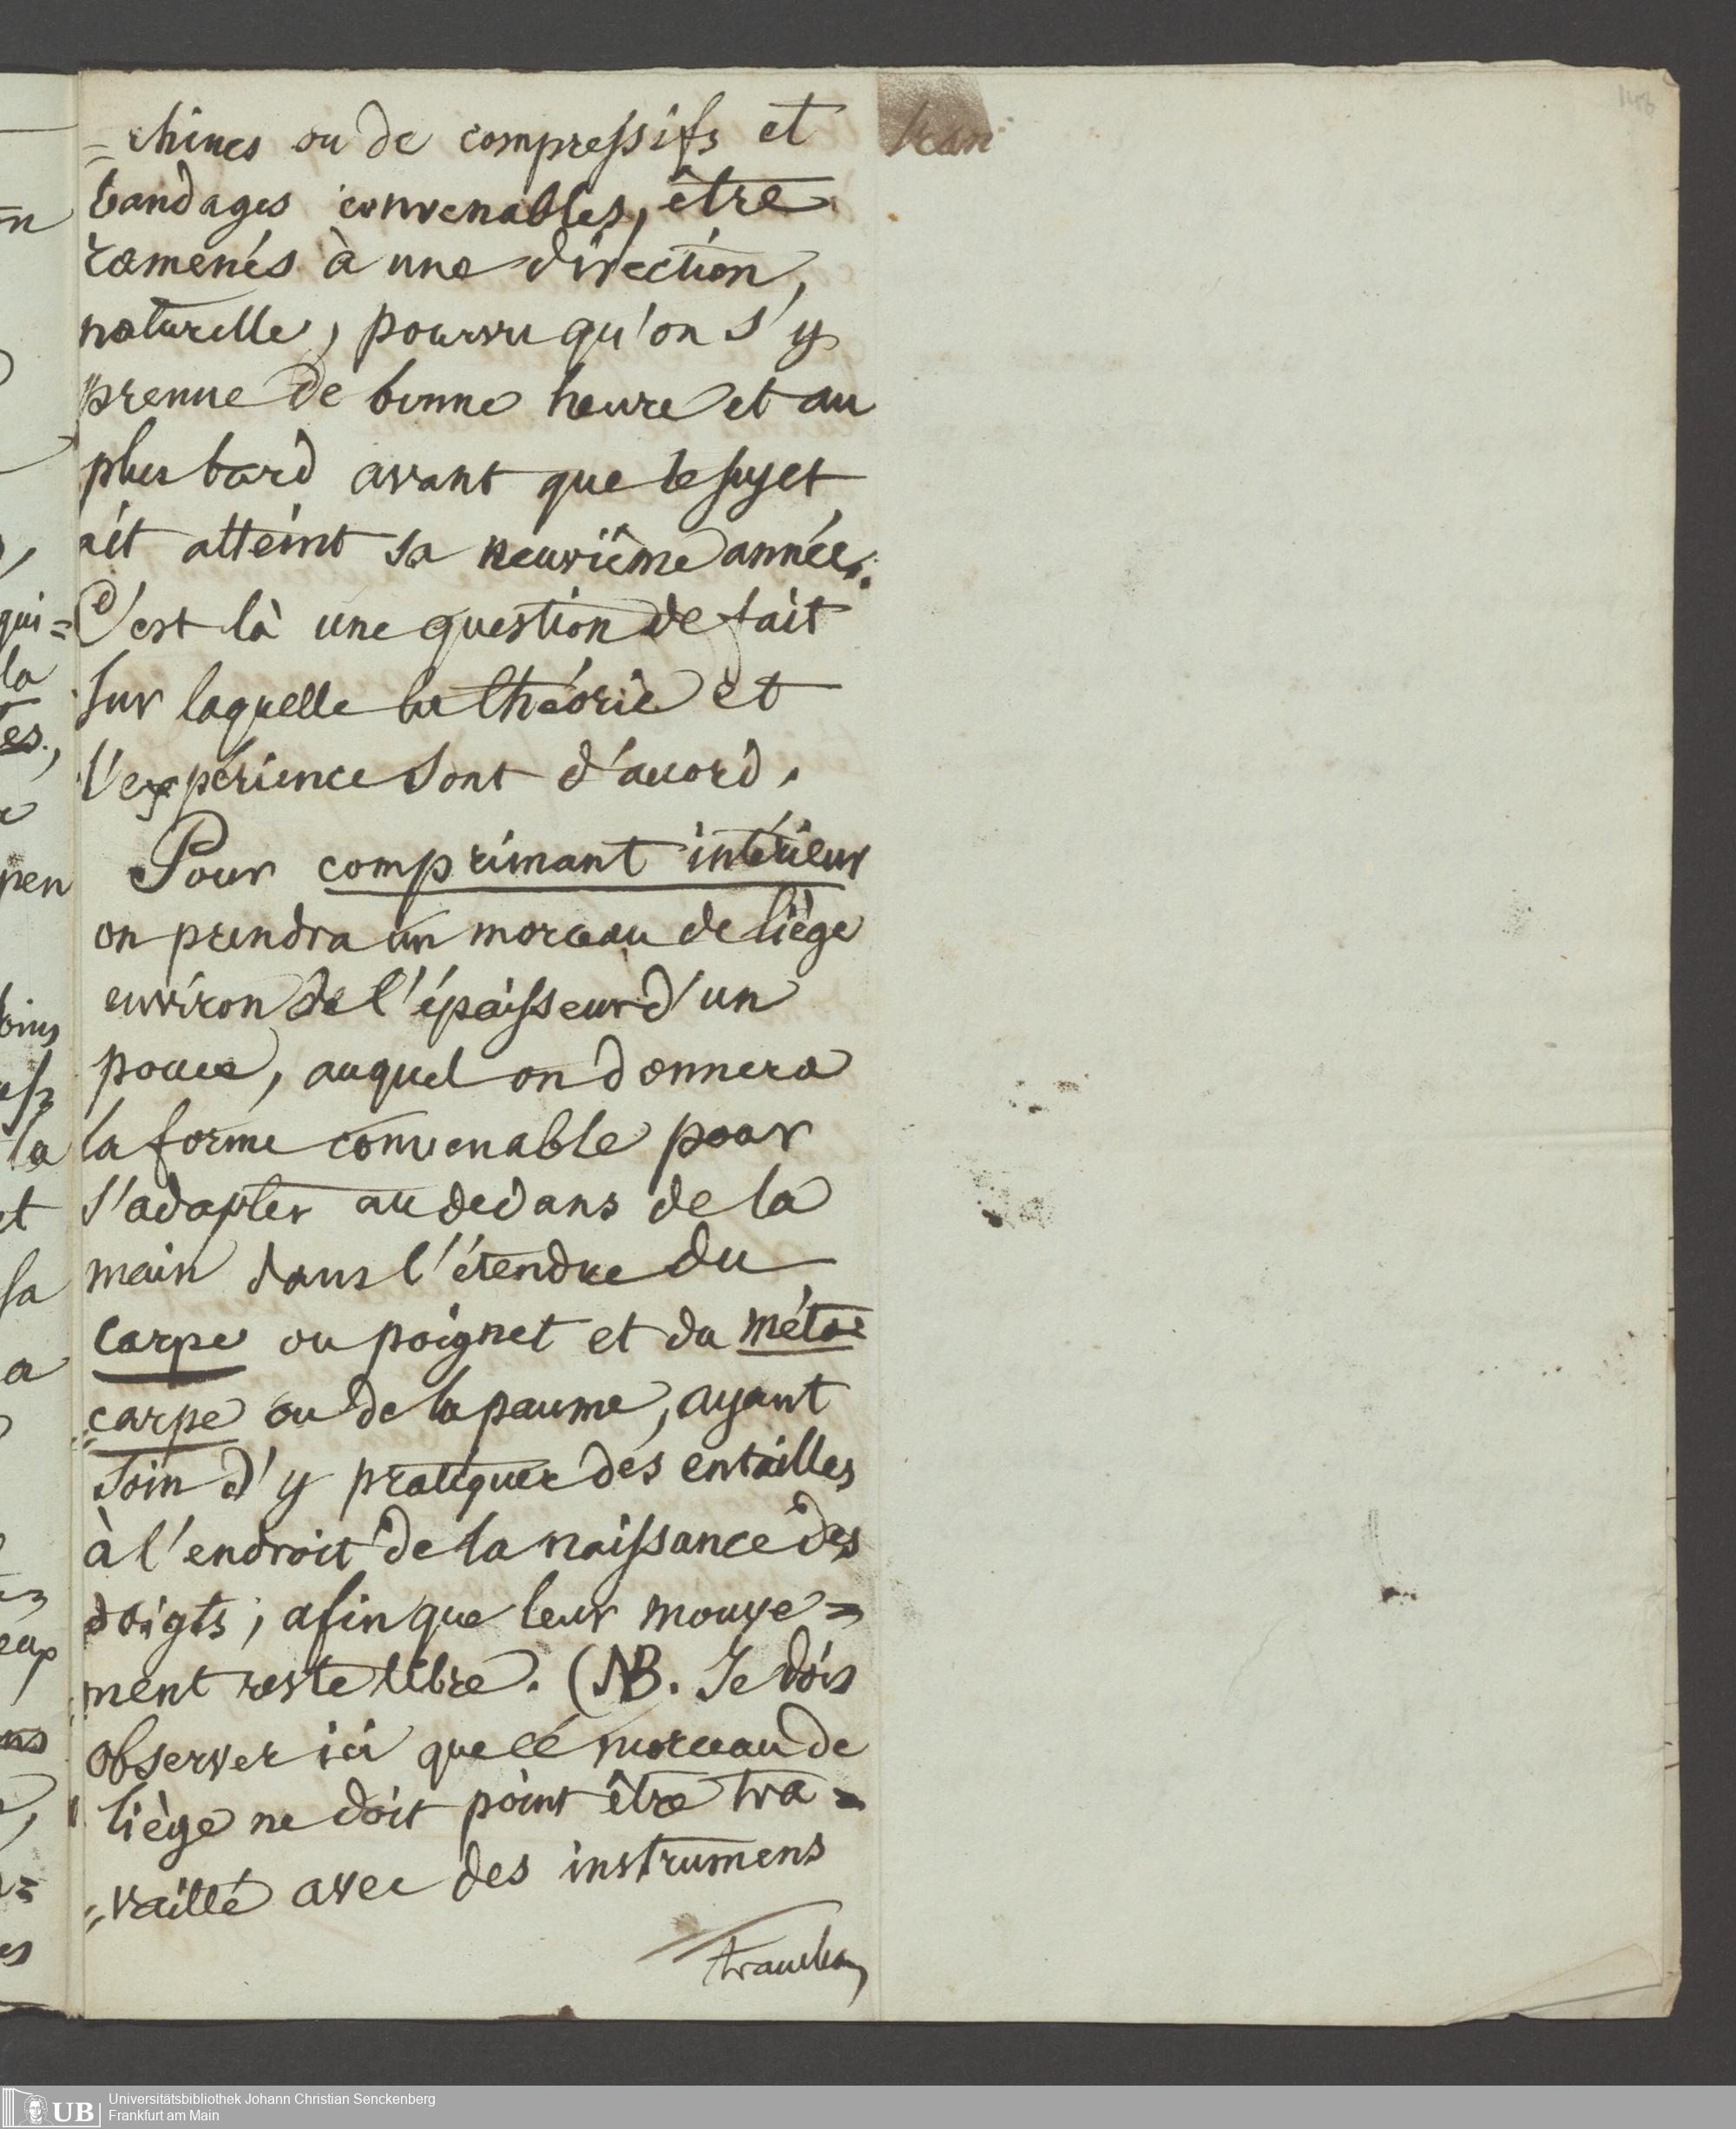 =chines ou de compressifs et
bandages convenables, être
ramenés à une direction,
naturelle, pourvu qu'on s'y
prenne de bonne heure et au
plus tard avant que le sujet
ait atteint sa neuvième année.
C'est là une question de fait
sur laquelle la théorie et
l'expérience sont d'accord.
Pour comprimant intérieur
on prendra un morceau de liège
environ de l'épaisseur d'un
pouce, auquel on donnera
la forme convenable pour
s'adapter au dedans de la
main dans l'étendue du
carpe ou poignet et du méta=
=carpe ou de la paume, ayant
soin d'y pratiquer des entailles
à l'endroit de la naissance des
doigts; afin que leur mouve=
ment reste libre. (NB. Je dois
observer ici que ce morceau de
liège ne doit point être tra=
=vaillé avec des instrumens
148
n
qui=
la
es,
pen
la
et
sa
a
es
UB
Universitätsbibliothek Johann Christian Senckenberg
Frankfurt am Main